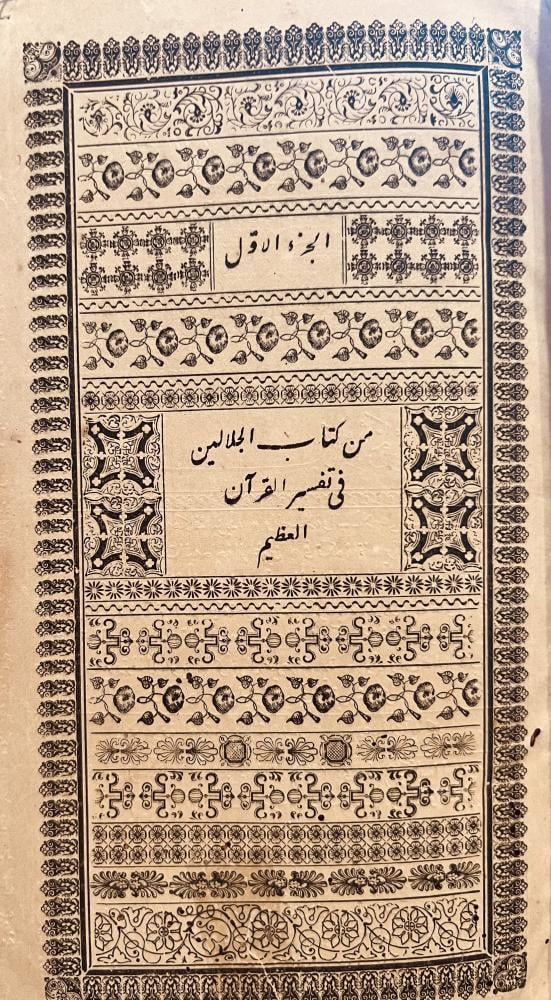 الجزء الاوّل
من كتاب الجلالين
فى تفسير القرآن
العظيم